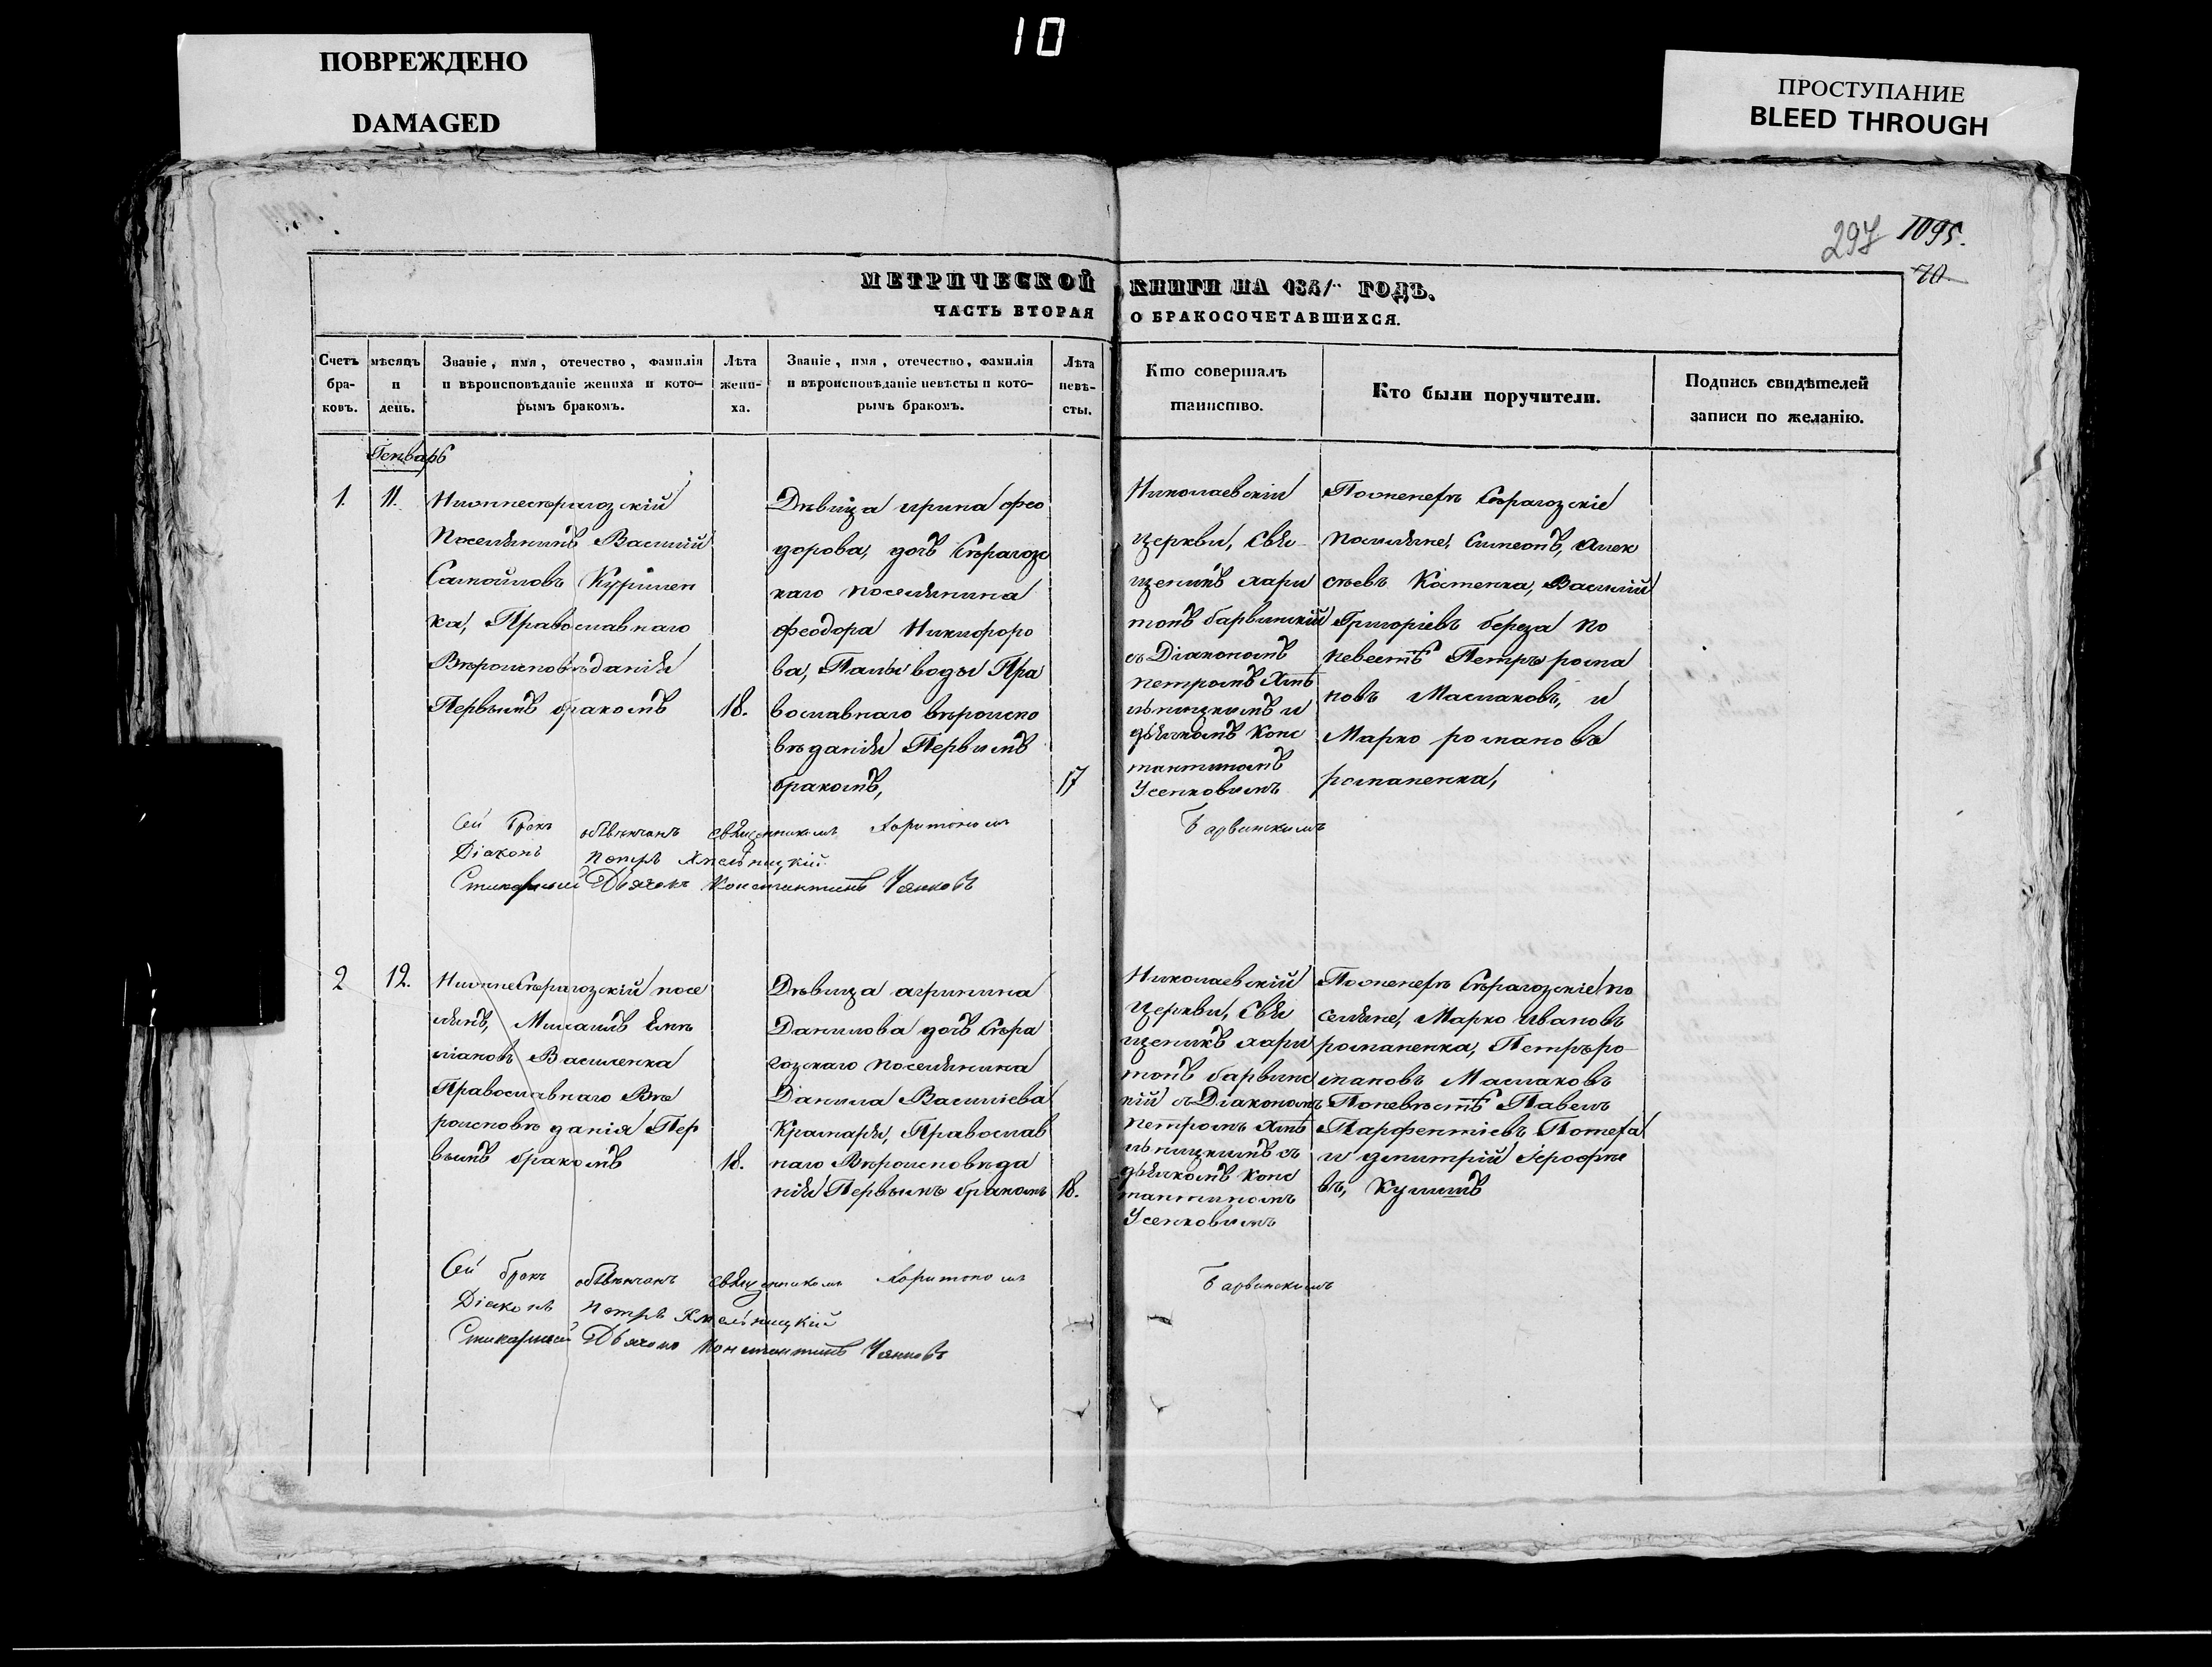 10
ПОВРЕЖДЕНО
DAMAGED
ПРОСТУПАНИЕ
BLEED THROUGH
297 1095.
70
МЕТРИЧЕСКОЙ КНИГИ НА 1841 ГОДЪ.
ЧАСТЬ ВТОРАЯ О БРАКОСОЧЕТАВШИХСЯ.
Счетъ
бра-
ковъ.
мѣсяцъ
и
день.
Званіе, имя, отечество, фамилія
и вѣроисповѣданіе жениха и кото-
рымъ бракомъ.
Лѣта
жени-
ха.
Званіе, имя, отечество, фамилія
и вѣроисповѣданіе невѣсты и кото-
рымъ бракомъ.
Лѣта
невѣ-
сты.
Кто совершалъ
таинство.
Кто были поручители.
Подпись свидѣтелей
записи по желанію.
Генварь
1. 11.
Нижнесѣрагозскій
Поселянинъ Василий
Самойловъ Куррилен
ка, Православнаго
Вѣроисповѣданія
Первымъ бракомъ
18.
Дѣвица ирина фео
дорова, дочь Сѣрагозс
каго поселянина
феодора Никифоро
ва, Паливоды Пра
вославнаго вѣроиспо
вѣданія Первимъ
бракомъ,
17
Николаевскій
церкви, Свя
щеникъ хари
тонъ барвинскій
съ Діакономъ
петромъ Хмѣ
льницкимъ и
дьячкомъ Конс
тантиномъ
Усенковимъ
По женехѣ Сѣрагозскіе
поселяне, Симеонъ, Алек
сѣевъ Костенка, Василий
Григоріевъ береза по
невестѣ Петръ рома
новъ Маслаковъ, и
Марко романовъ
романенка,
Сей бракъ обвѣнчанъ священникомъ Харитономъ Барвинскимъ
Діаконъ Петръ Хмельницкій
Стихарный Дьячокъ Константинъ Усенковъ
2 12.
НижнеСѣрагозскій посе
лянъ, Михаилъ Еме
ліановъ Василенка
Православнаго Вѣ
роисповѣданія Пер
вымъ бракомъ
18.
Дѣвица агрипина
Данилова дочь Сѣра
гозскаго поселянина
Данила Василіева
Крамаря, Православ
наго Вѣроисповѣда
нія Первымъ бракомъ
18.
Николаевскій
Церкви, Свя
щеникъ хари
тонъ барвинс
кій съ Діакономъ
петромъ Хмѣ
льницкимъ съ
дьячкомъ Конс
тантиномъ
Усенковимъ
По женехѣ Сѣрагозскіе по
селяне, Марко Ивановъ
романенка, Петръ ро
мановъ Маслаковъ
По невѣстѣ Павелъ
Парфентіевъ Потеха
и димитрій Іерофѣе
въ, Кулишъ
Сей бракъ обвѣнчанъ священникомъ Харитономъ Барвинскимъ
Діаконъ Петръ Хмельницкій
Стихарный Дьячокъ Константинъ Усенковъ